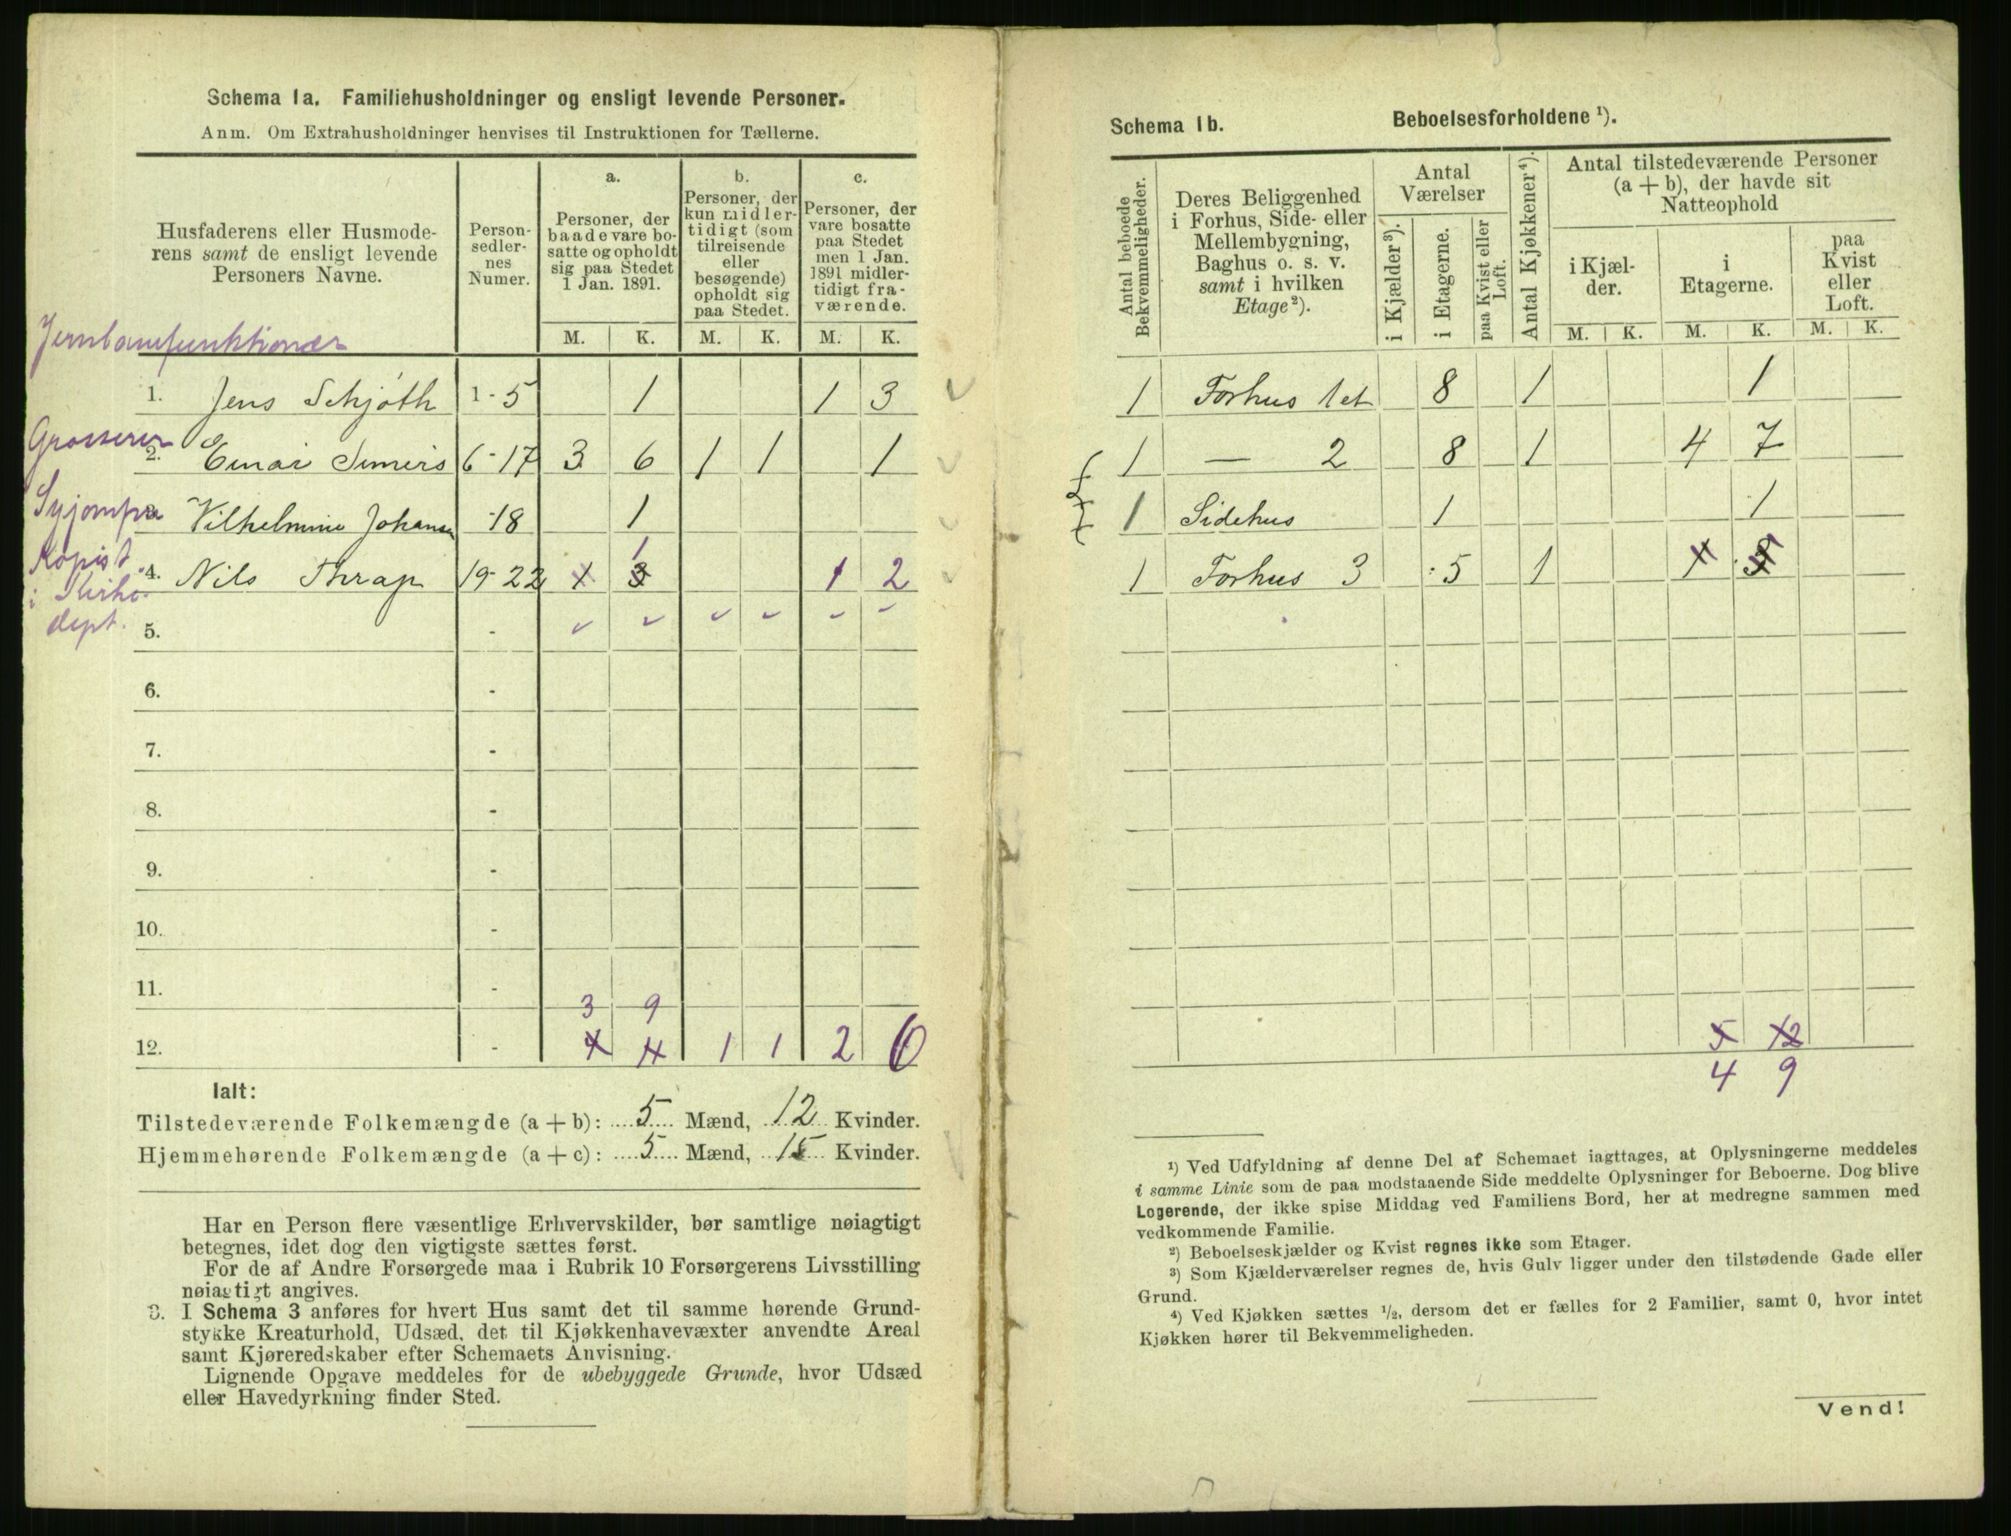 Schema 1a. Familiehusholdninger og ensligt levende Personer.
Anm. Om Extrahusholdninger henvises til Instruktionen for Tællerne.
Husfaderens eller Husmode-
rens samt de ensligt levende
Personers Navne.
Person-
sedler-
nes
Numer.
a.
Personer, der
baade vare bo-
satte og opholdt
sig paa Stedet
1 Jan. 1891.
b.
Personer, der
kun midler-
tidigt (som
tilreisende
eller
besøgende)
opholdt sig
paa Stedet.
c.
Personer, der
vare bosatte
paa Stedet
men 1 Jan.
1891 midler-
tidigt fra-
værende.
M. K. M. K. M. K.
Jernbanefunktionær
1. Jens Schjøth 1-5 1 1 3
Grosserer
2. Einar Simers 6-17 3 6 1 1 1
Syjomfru
3. Vilhelmine Johansen -18 1
Kopist
i Kirke-
dept.
1
4. Nils Thrap 19-22 1 3 1 2
5. -
6. -
7. -
8. -
9. -
10. -
11. -
3 9
12. - 4 11 1 1 2 6
Ialt:
Tilstedeværende Folkemængde (a + b): 5 Mænd, 12 Kvinder.
Hjemmehørende Folkemængde (a + c): 5 Mænd, 15 Kvinder.
Har en Person flere væsentlige Erhvervskilder, bør samtlige nøiagtigt
betegnes, idet dog den vigtigste sættes først.
For de af Andre Forsørgede maa i Rubrik 10 Forsørgerens Livsstilling
nøiagtigt angives.
3. I Schema 3 anføres for hvert Hus samt det til samme hørende Grund-
stykke Kreaturhold, Udsæd, det til Kjøkkenhavevæxter anvendte Areal
samt Kjøreredskaber efter Schemaets Anvisning.
Lignende Opgave meddeles for de ubebyggede Grunde, hvor Udsæd
eller Havedyrkning finder Sted.
Schema 1b. Beboelsesforholdene ¹).
Antal beboede
Bekvemmeligheder.
Deres Beliggenhed
i Forhus, Side- eller
Mellembygning,
Baghus o. s. v.
samt i hvilken
Etage²).
Antal
Værelser
i Kjælder³).
i Etagerne.
paa Kvist eller
Loft.
Antal Kjøkkener⁴).
Antal tilstedeværende Personer
(a + b), der havde sit
Natteophold
i Kjæl-
der.
i
Etagerne.
paa
Kvist
eller
Loft.
M. K. M. K. M. K.
1 Forhus 1 et 8 1 1
1 — 2 8 1 4 7
1 Sidehus 1 1
1 Forhus 3 5 1 1 3
5 12
4 9
¹) Ved Udfyldning af denne Del af Schemaet iagttages, at Oplysningerne meddeles
i samme Linie som de paa modstaaende Side meddelte Oplysninger for Beboerne. Dog blive
Logerende, der ikke spise Middag ved Familiens Bord, her at medregne sammen med
vedkommende Familie.
²) Beboelseskjælder og Kvist regnes ikke som Etager.
³) Som Kjælderværelser regnes de, hvis Gulv ligger under den tilstødende Gade eller
Grund.
⁴) Ved Kjøkken sættes ¹/₂, dersom det er fælles for 2 Familier, samt 0, hvor intet
Kjøkken hører til Bekvemmeligheden.
Vend!